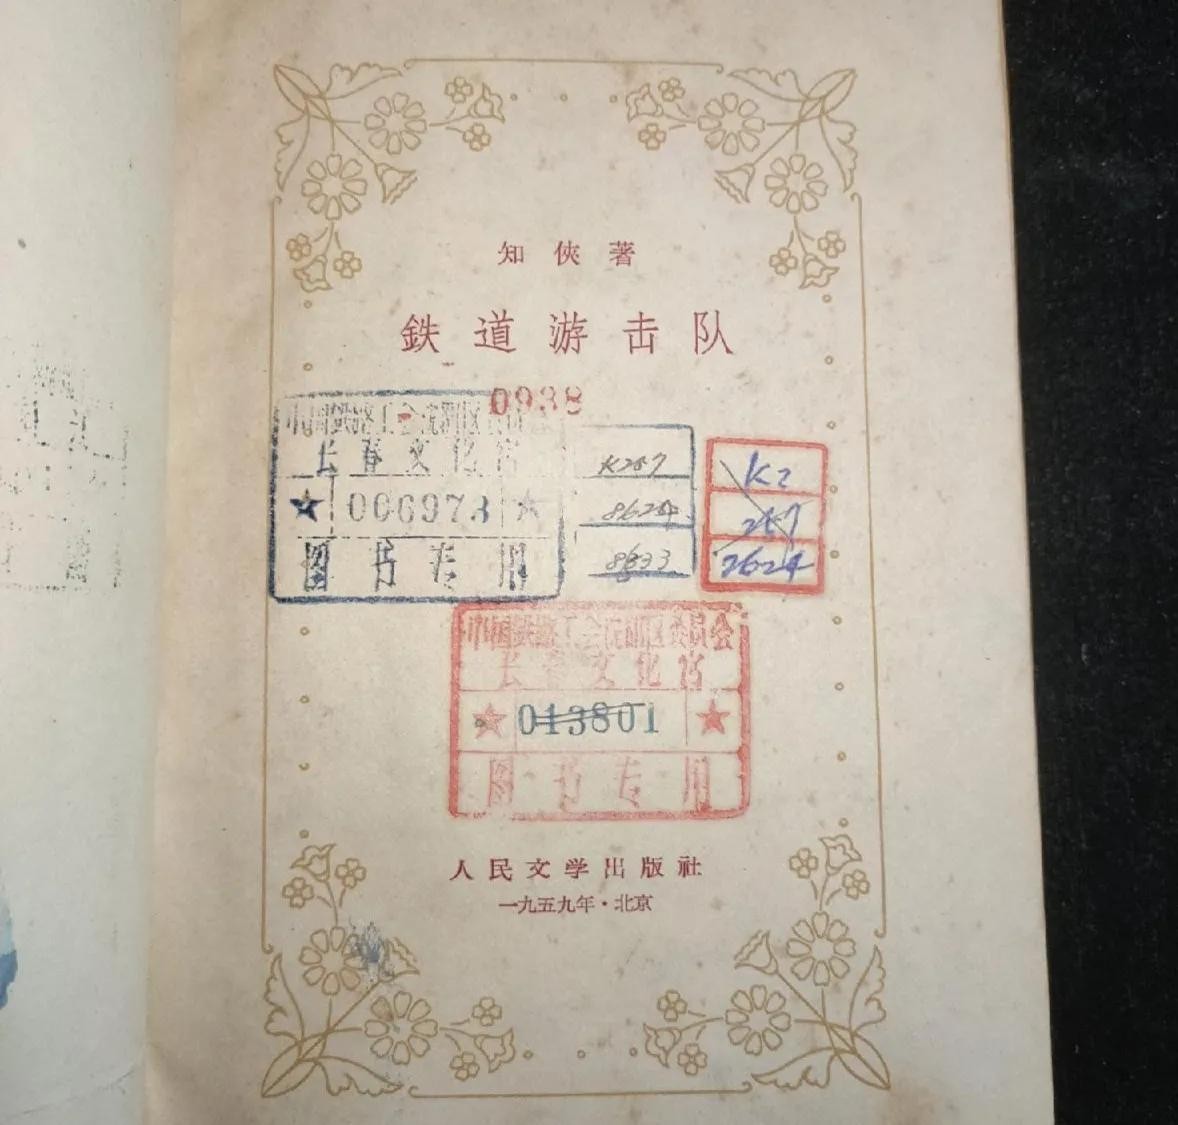 知侠著
鉄道游击队
0938
中国铁路工会沈阳区委员会
长春文化宫
★ 006973 ★
图书专用
K247
8624
8633
K2
247
2624
中国铁路工会沈阳区委员会
长春文化宫
★ 013801 ★
图书专用
人民文学出版社
一九五九年·北京